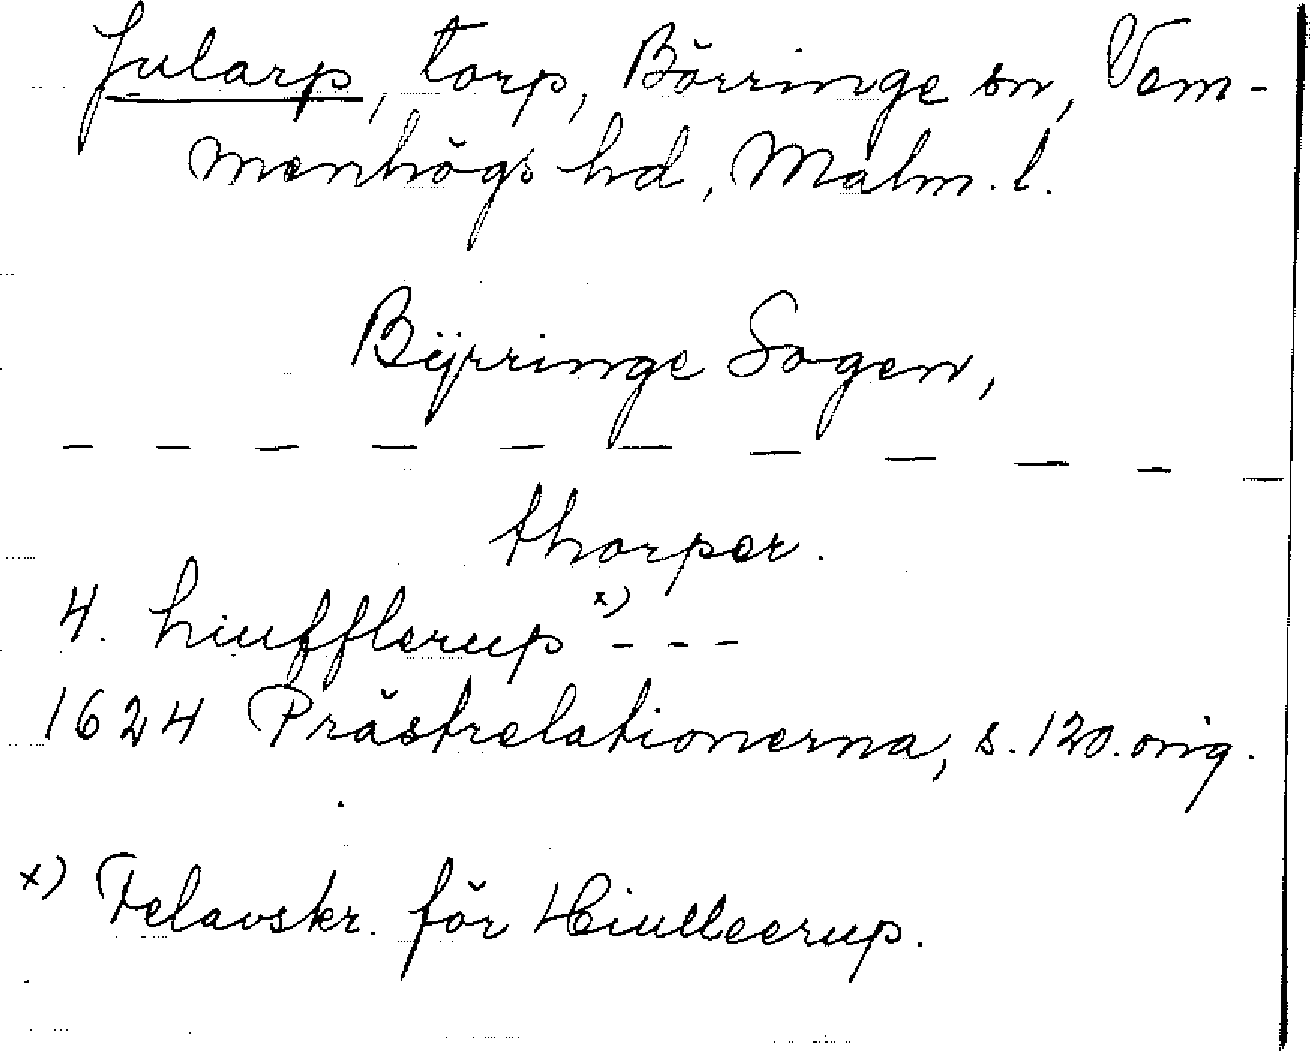 Jularp, torp, Börringe sn, Vem-
menhögs hd, Malm. l.
Bÿrringe Sogen,
— — — — — — — — — — —
thorper.
4. hiufflerup x) - - -
1624 Prästrelationerna, s. 120. orig.
x) Felavskr. för Hiulleerup.